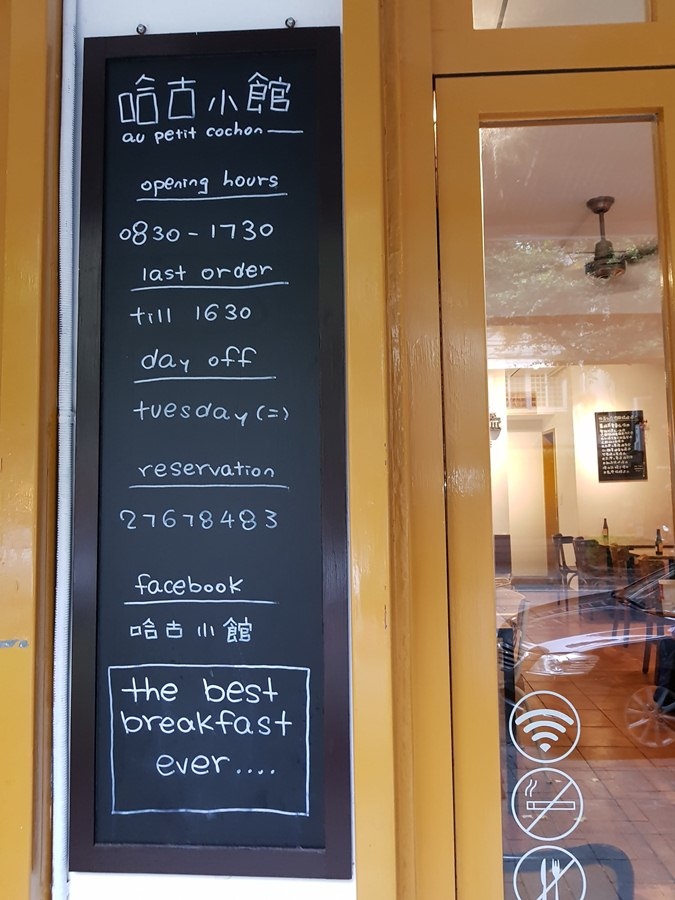 哈古小館
au petit cochon
opening hours
0830 - 1730
last order
till 1630
day off
tuesday (二)
reservation
27678483
facebook
哈古小館
the best
breakfast
ever....